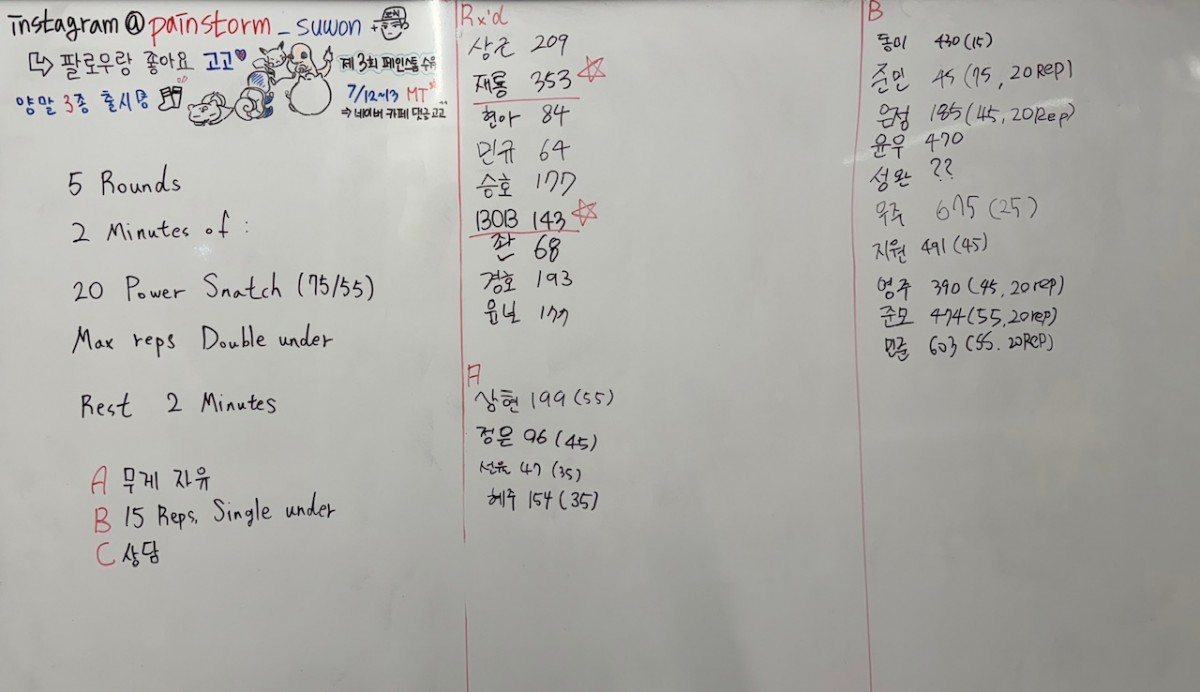 instagram@painstorm_suwon
↳ 팔로우랑 좋아요 고고♥
양말 3종 출시
제 3회 페인스톰 수원
7/12~13 MT
⇒ 네이버 카페 댓글 고고
5 Rounds
2 Minutes of :
20 Power Snatch (75/55)
Max reps Double under
Rest 2 Minutes
A 무게 자유
B 15 Reps, Single under
C 상담
Rx'd
상근 209
재롱 353 ☆
현아 84
민규 64
승호 177
BOB 143 ☆
좌 68
경호 193
177
A
상현 199 (55)
정은 96 (45)
선유 47 (35)
혜주 154 (35)
B
동미 430 (15)
준민 45 (75, 20rep)
음정 185 (45, 20Rep)
윤우 470
성완 ??
우주 675 (25)
지원 491 (45)
영주 390 (45, 20rep)
준모 474 (55, 20rep)
민준 603 (55. 20Rep)